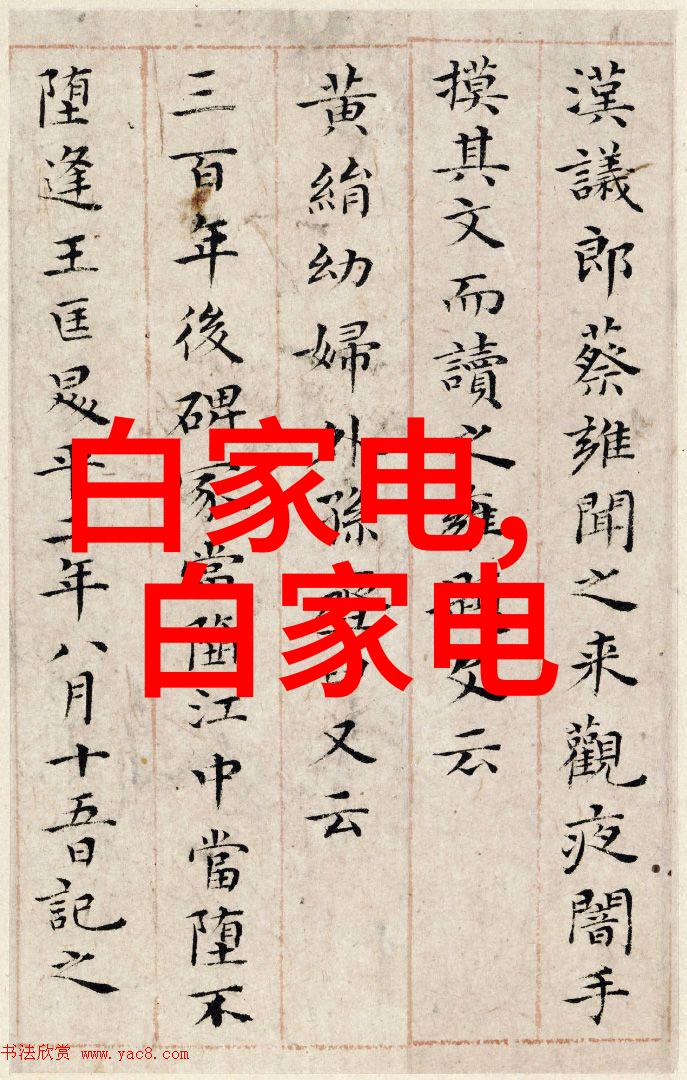 漢議郎蔡雍聞之来觀夜闇手
摸其文而讀之雍題文云
黃絹幼婦外孫又云
三百年後碑冢當墮江中當堕不
堕逢王匡平二年八月十五日記之
白家电,
白家电
书法欣赏 www.yac8.com